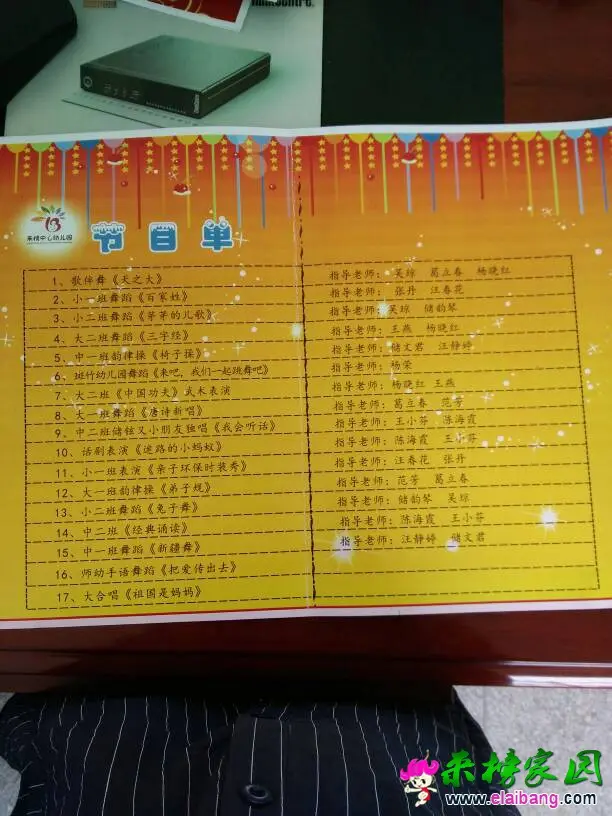 来榜中心幼儿园
节目单
1、歌伴舞《天之大》 指导老师：吴琼 葛立春 杨晓红
2、小一班舞蹈《百家姓》 指导老师：张丹 汪春花
3、小二班舞蹈《爷爷的儿歌》 指导老师：吴琼 储韵琴
4、大二班舞蹈《三字经》 指导老师：王燕 杨晓红
5、中一班韵律操《椅子操》 指导老师：储文君 汪静婷
6、斑竹幼儿园舞蹈《来吧，我们一起跳舞吧》 指导老师：杨荣
7、大二班《中国功夫》武术表演 指导老师：杨晓红 王燕
8、大一班舞蹈《唐诗新唱》 指导老师：葛立春 范芳
9、中二班储铉又小朋友独唱《我会听话》 指导老师：王小芬 陈海霞
10、话剧表演《迷路的小蚂蚁》 指导老师：陈海霞 王小芬
11、小一班表演《亲子环保时装秀》 指导老师：汪春花 张丹
12、大一班韵律操《弟子规》 指导老师：范芳 葛立春
13、小二班舞蹈《兔子舞》 指导老师：储韵琴 吴琼
14、中二班《经典诵读》 指导老师：陈海霞 王小芬
15、中一班舞蹈《新疆舞》 指导老师：汪静婷 储文君
16、师幼手语舞蹈《把爱传出去》
17、大合唱《祖国是妈妈》
来榜家园
www.elaibang.com